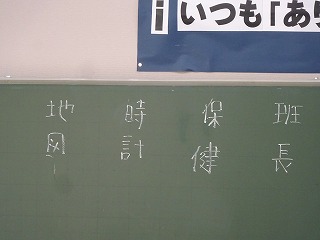 いつも「あ
班長
保健
時計
地図